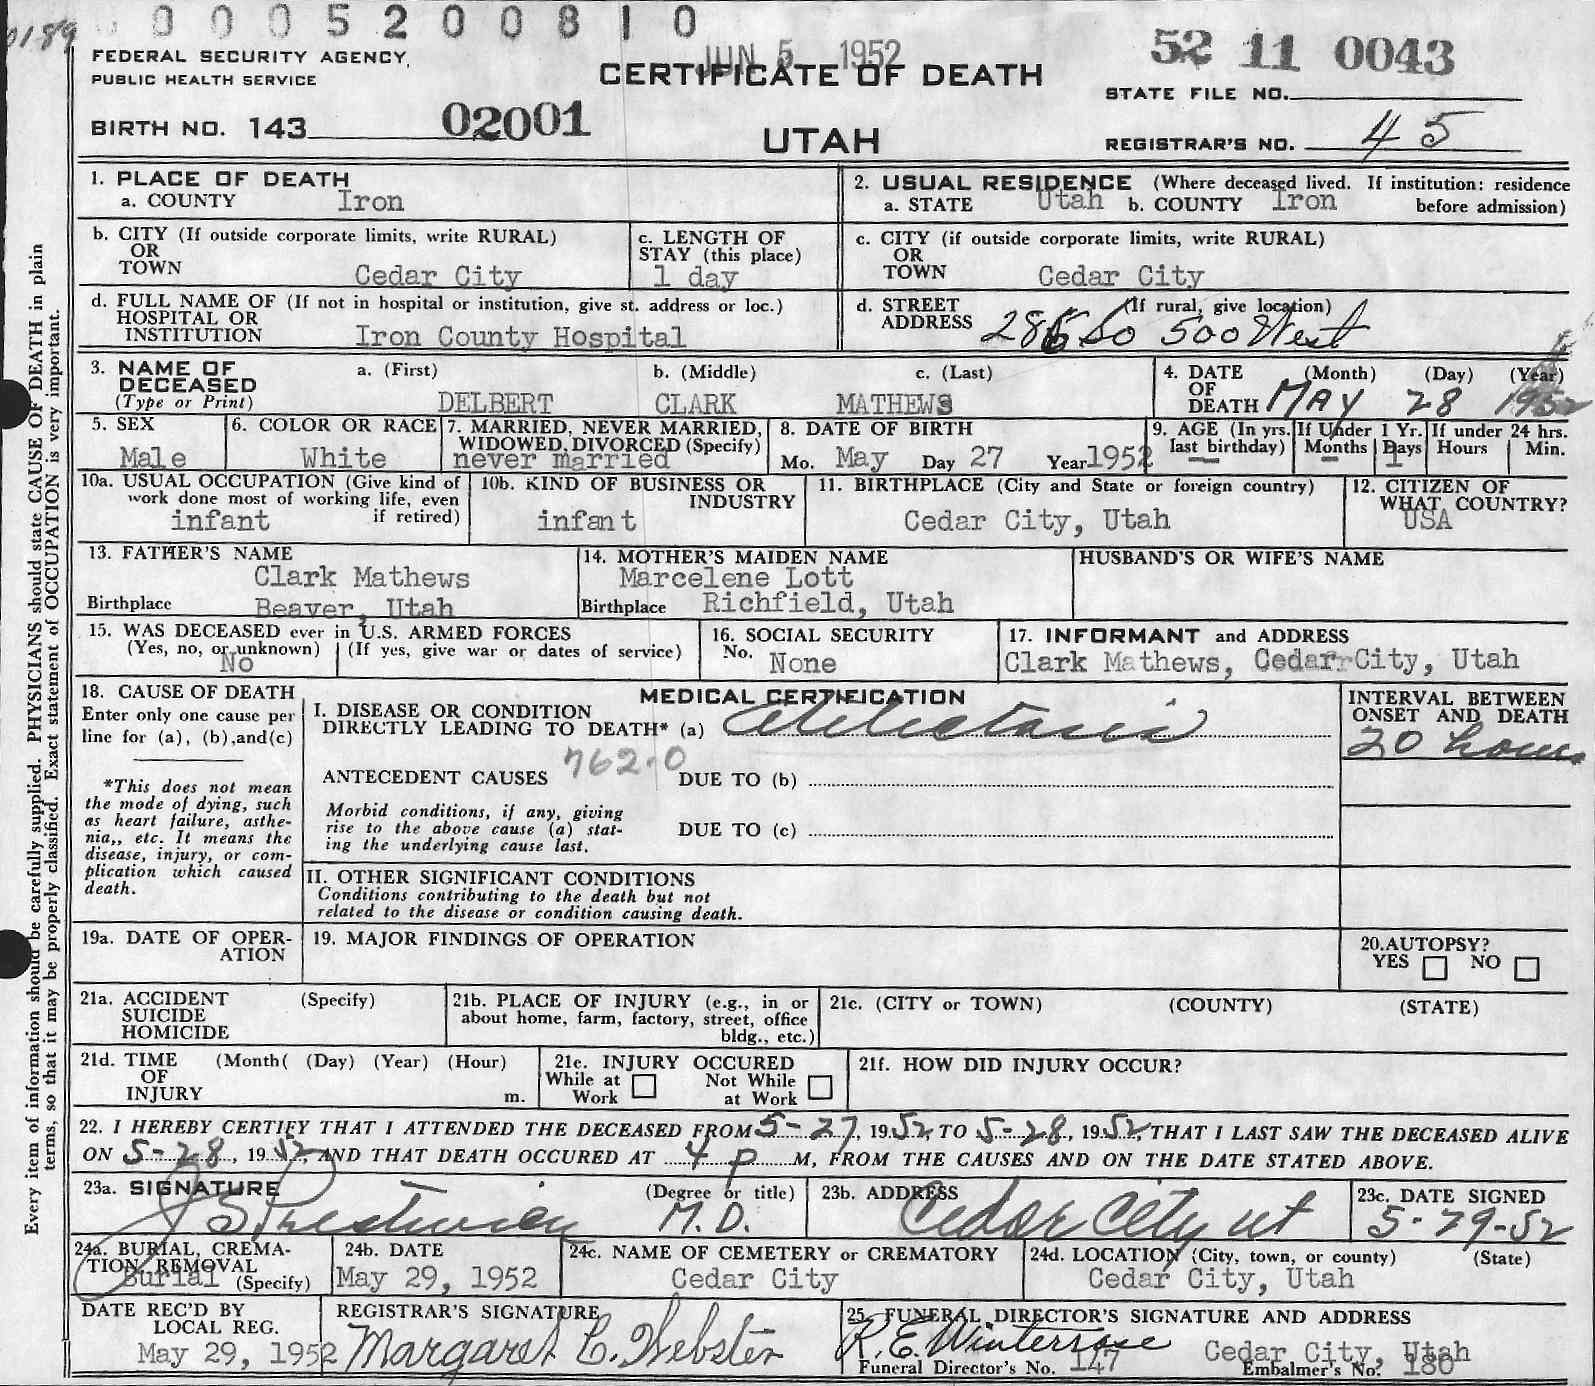 0189
0 0 0 5 2 0 0 8 1 0
JUN 5 1952
52 11 0043
FEDERAL SECURITY AGENCY,
PUBLIC HEALTH SERVICE
CERTIFICATE OF DEATH
STATE FILE NO.
BIRTH NO. 143 02001
UTAH
REGISTRAR'S NO. 45
Every item of information should be carefully supplied. PHYSICIANS should state CAUSE OF DEATH in plain
terms, so that it may be properly classified. Exact statement of OCCUPATION is very important.
1. PLACE OF DEATH
a. COUNTY Iron
2. USUAL RESIDENCE (Where deceased lived. If institution: residence
a. STATE Utah b. COUNTY Iron before admission)
b. CITY (If outside corporate limits, write RURAL)
OR
TOWN Cedar City
c. LENGTH OF
STAY (this place)
1 day
c. CITY (if outside corporate limits, write RURAL)
OR
TOWN Cedar City
d. FULL NAME OF (If not in hospital or institution, give st. address or loc.)
HOSPITAL OR
INSTITUTION Iron County Hospital
d. STREET (If rural, give location)
ADDRESS So 500 West
3. NAME OF a. (First) b. (Middle) c. (Last)
DECEASED
(Type or Print) DELBERT CLARK MATHEWS
4. DATE (Month) (Day) (Year)
OF
DEATH MAY 28 1952
5. SEX
Male
6. COLOR OR RACE
White
7. MARRIED, NEVER MARRIED,
WIDOWED, DIVORCED (Specify)
never married
8. DATE OF BIRTH
Mo. May Day 27 Year 1952
9. AGE (In yrs.
last birthday)
—
If Under 1 Yr.
Months Days
- 1
If under 24 hrs.
Hours Min.
10a. USUAL OCCUPATION (Give kind of
work done most of working life, even
infant if retired)
10b. KIND OF BUSINESS OR
INDUSTRY
infant
11. BIRTHPLACE (City and State or foreign country)
Cedar City, Utah
12. CITIZEN OF
WHAT COUNTRY?
USA
13. FATHER'S NAME
Clark Mathews
Birthplace Beaver, Utah
14. MOTHER'S MAIDEN NAME
Marcelene Lott
Birthplace Richfield, Utah
HUSBAND'S OR WIFE'S NAME
15. WAS DECEASED ever in U.S. ARMED FORCES
(Yes, no, or unknown) (If yes, give war or dates of service)
No
16. SOCIAL SECURITY
No. None
17. INFORMANT and ADDRESS
Clark Mathews, Cedar City, Utah
18. CAUSE OF DEATH
Enter only one cause per
line for (a), (b),and(c)
*This does not mean
the mode of dying, such
as heart failure, asthe-
nia,, etc. It means the
disease, injury, or com-
plication which caused
death.
MEDICAL CERTIFICATION
I. DISEASE OR CONDITION
DIRECTLY LEADING TO DEATH* (a) Atelectasis
762.0
ANTECEDENT CAUSES DUE TO (b)
Morbid conditions, if any, giving
rise to the above cause (a) stat-
ing the underlying cause last.
DUE TO (c)
II. OTHER SIGNIFICANT CONDITIONS
Conditions contributing to the death but not
related to the disease or condition causing death.
INTERVAL BETWEEN
ONSET AND DEATH
20 hours
19a. DATE OF OPER-
ATION
19. MAJOR FINDINGS OF OPERATION
20.AUTOPSY?
YES NO
21a. ACCIDENT (Specify)
SUICIDE
HOMICIDE
21b. PLACE OF INJURY (e.g., in or
about home, farm, factory, street, office
bldg., etc.)
21c. (CITY or TOWN) (COUNTY) (STATE)
21d. TIME (Month( (Day) (Year) (Hour)
OF
INJURY m.
21e. INJURY OCCURED
While at Not While
Work at Work
21f. HOW DID INJURY OCCUR?
22. I HEREBY CERTIFY THAT I ATTENDED THE DECEASED FROM 5-27, 1952, TO 5-28, 1952, THAT I LAST SAW THE DECEASED ALIVE
ON 5-28, 1952, AND THAT DEATH OCCURED AT 4 P M, FROM THE CAUSES AND ON THE DATE STATED ABOVE.
23a. SIGNATURE (Degree or title)
J S Prestwich M.D.
23b. ADDRESS
Cedar City Ut
23c. DATE SIGNED
5-29-52
24a. BURIAL, CREMA-
TION, REMOVAL
Burial (Specify)
24b. DATE
May 29, 1952
24c. NAME OF CEMETERY or CREMATORY
Cedar City
24d. LOCATION (City, town, or county) (State)
Cedar City, Utah
DATE REC'D BY
LOCAL REG.
May 29, 1952
REGISTRAR'S SIGNATURE
Margaret C. Webster
25. FUNERAL DIRECTOR'S SIGNATURE AND ADDRESS
R. E. Winterrose Cedar City, Utah
Funeral Director's No. 147 Embalmer's No. 180